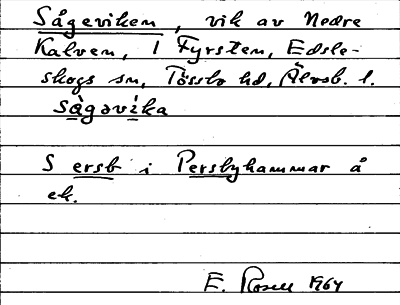 Sågeviken, vik av Nedre
Kalven, i Fyrsten, Edsle-
skogs sn, Tössbo hd, Älvsb. l.
sågəvika
S ersb i Persbyhammar å
ek.
E. Rosell 1964